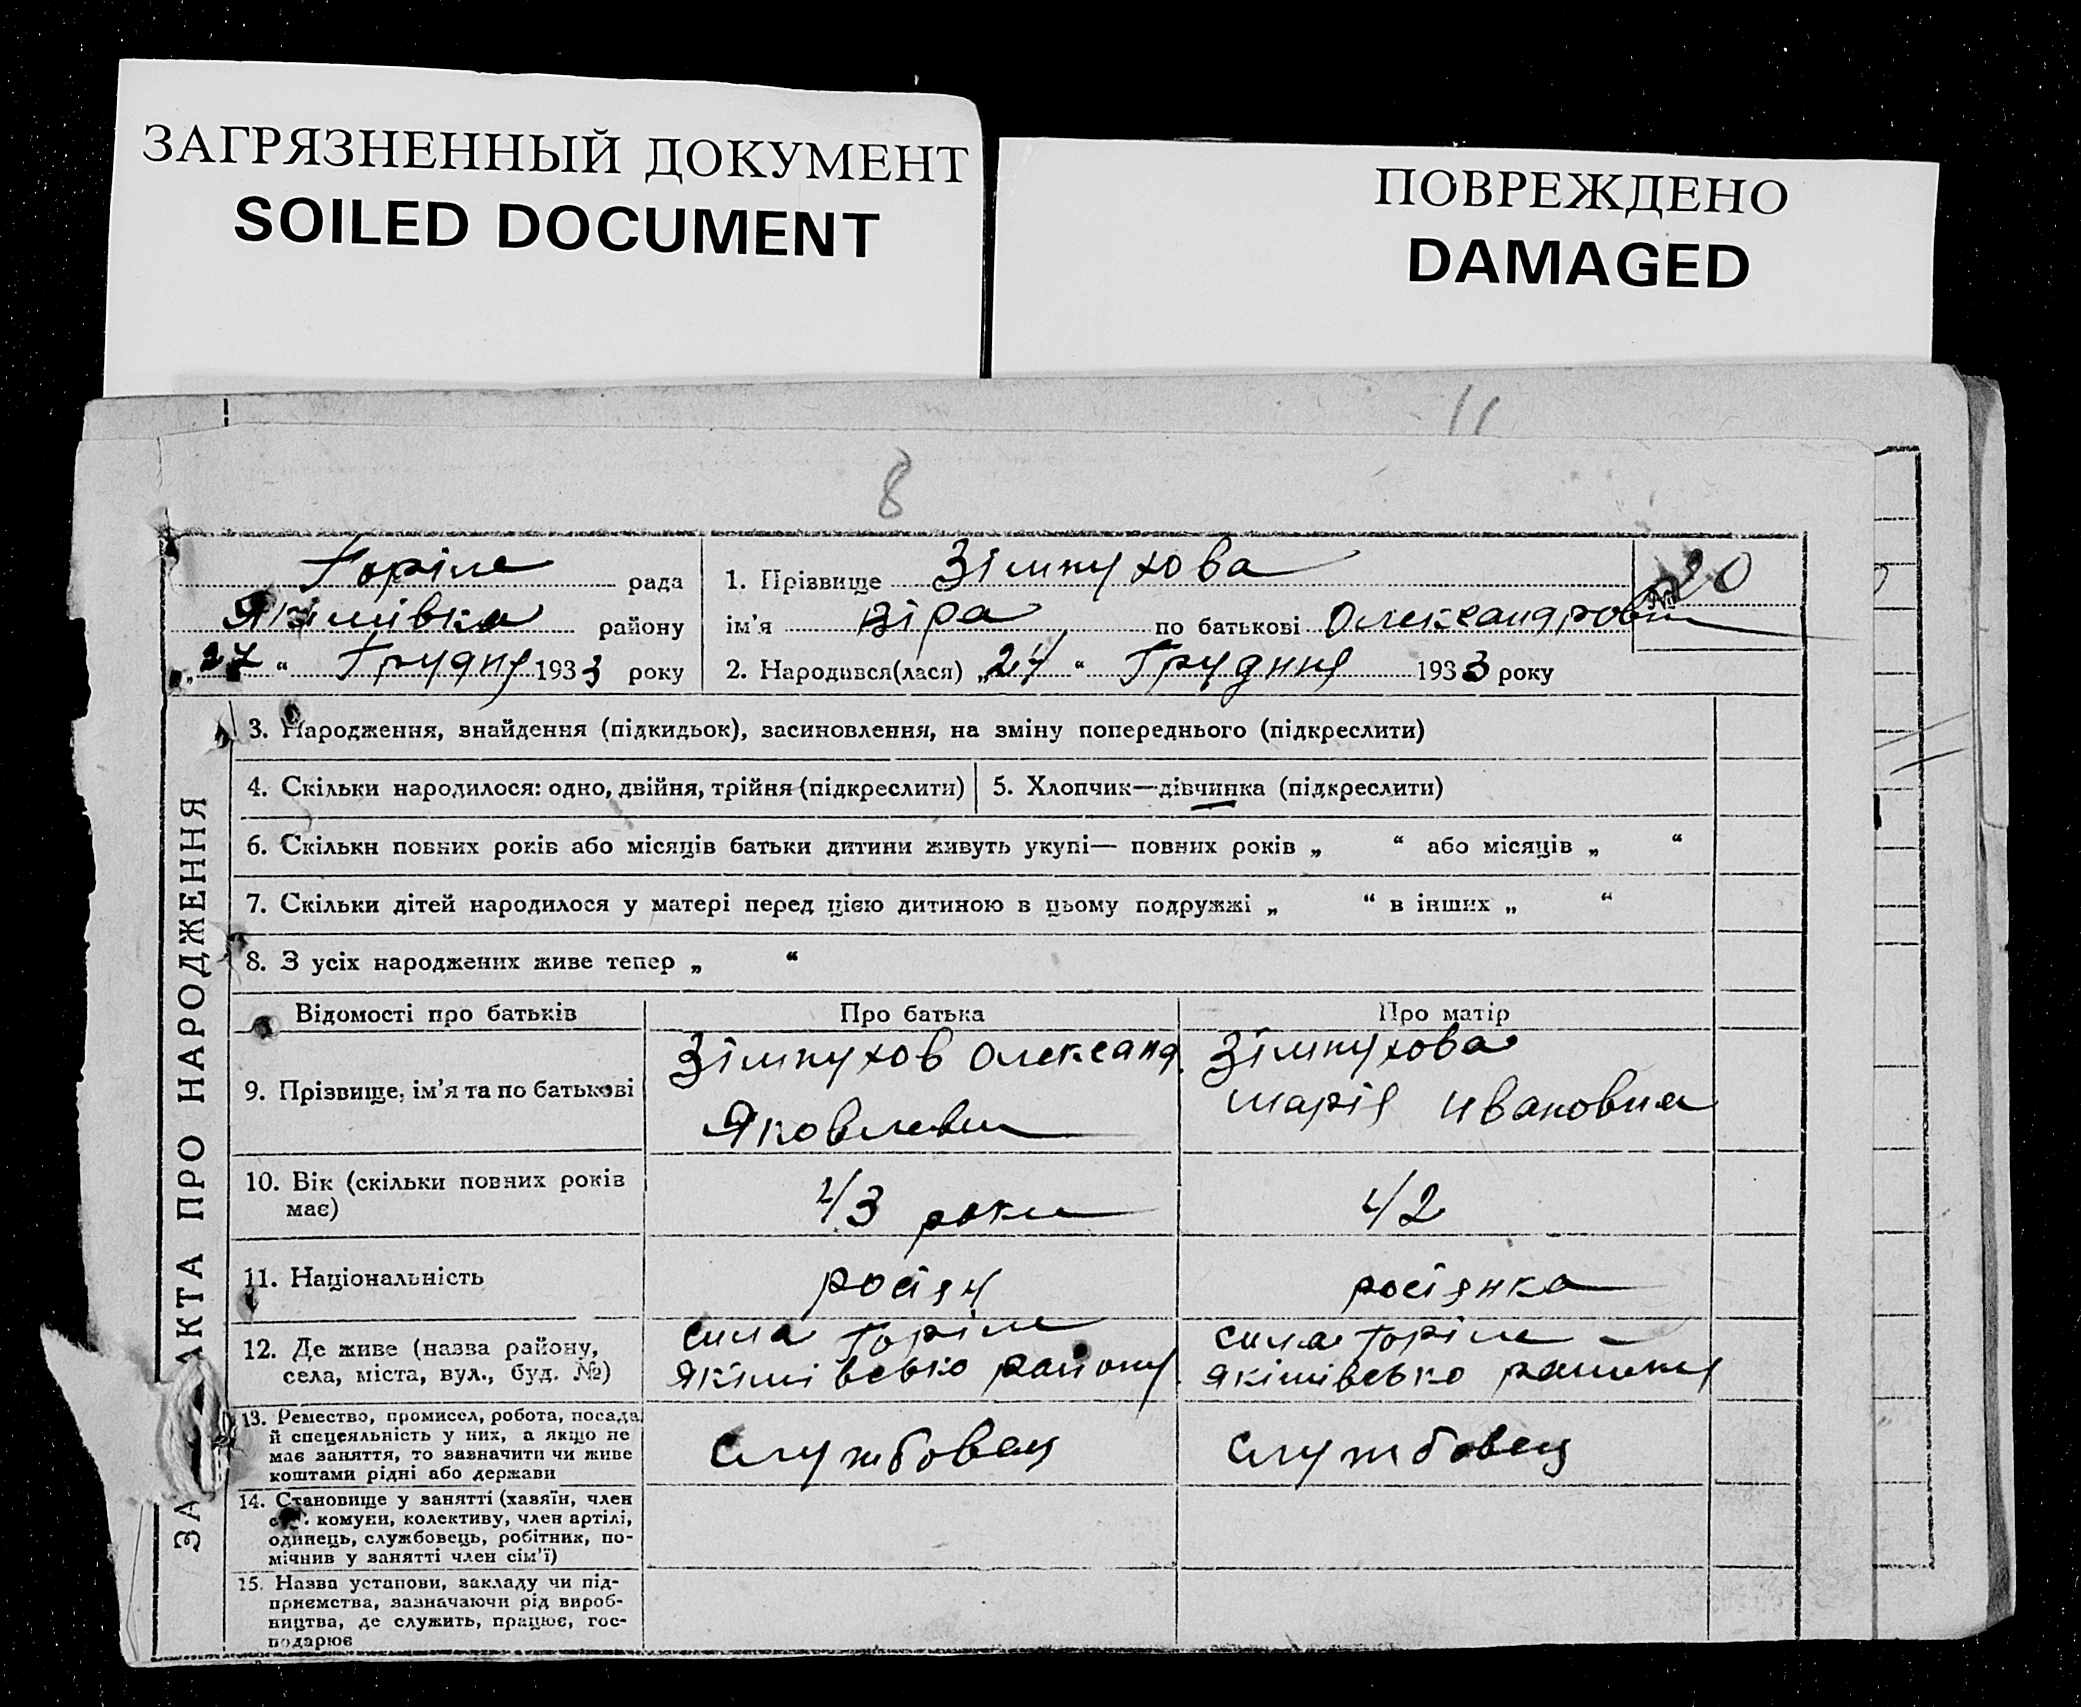 ЗАГРЯЗНЕННЫЙ ДОКУМЕНТ
SOILED DOCUMENT
ПОВРЕЖДЕНО
DAMAGED
11
8
Горіле рада
Якимівка району
„27“ Грудня 1933 року
1. Прізвище Зімнухова
ім'я Віра по батькові Олександровн
№ 20
2. Народився(лася) „24“ Грудня 1933 року
ЗА АКТА ПРО НАРОДЖЕННЯ
3. Народження, знайдення (підкидьок), засиновлення, на зміну попереднього (підкреслити)
4. Скільки народилося: одно, двійня, трійня (підкреслити)
5. Хлопчик—дівчинка (підкреслити)
6. Скільки повних років або місяців батьки дитини живуть укупі— повних років „ “ або місяців „ “
7. Скільки дітей народилося у матері перед цією дитиною в цьому подружжі „ “ в інших „ “
8. З усіх народжених живе тепер „ “
Відомості про батьків
Про батька
Про матір
9. Прізвище, ім'я та по батькові
Зімнухов Олександ.
Яковлевич
Зімнухова
Марія Ивановна
10. Вік (скільки повних років
має)
43 роки
42
11. Національність
росіян
росіянка
12. Де живе (назва району,
села, міста, вул., буд. №)
сила Горіле
Якімівсько району
сила Горіле
Якімівсько району
13. Ремество, промисел, робота, посада
й спецеяльність у них, а якщо не
має заняття, то зазначити чи живе
коштами рідні або держави
Службовец
Службовец
14. Становище у занятті (хазяїн, член
комуни, колективу, член артілі,
одинець, службовець, робітник, по-
мічнив у занятті член сім'ї)
15. Назва установи, закладу чи під-
приємства, зазначаючи рід вироб-
ництва, де служить, працює, гос-
подарює